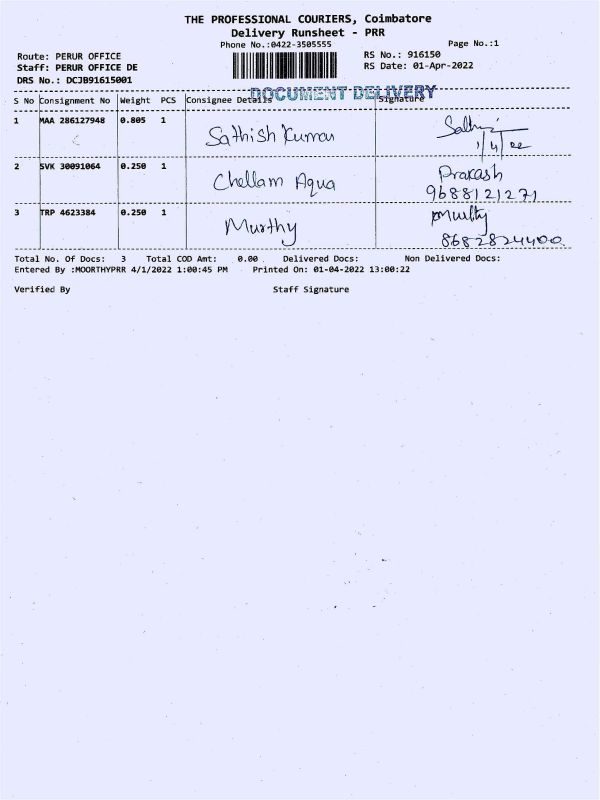 THE PROFESSIONAL COURIERS, Coimbatore
Delivery Runsheet - PRR
Phone No.:0422-3505555 Page No.:1
Route: PERUR OFFICE RS No.: 916150
Staff: PERUR OFFICE DE RS Date: 01-Apr-2022
DRS No.: DCJB91615001
DOCUMENT DELIVERY
S No Consignment No Weight PCS Consignee Details Signature
1 MAA 286127948 0.805 1 Sathish Kumar
1/4/22
2 SVK 30091064 0.250 1 Chellam Aqua Prakash
9688121271
3 TRP 4623384 0.250 1 Murthy
8682824400
Total No. Of Docs: 3 Total COD Amt: 0.00 Delivered Docs: Non Delivered Docs:
Entered By :MOORTHYPRR 4/1/2022 1:00:45 PM Printed On: 01-04-2022 13:00:22
Verified By Staff Signature